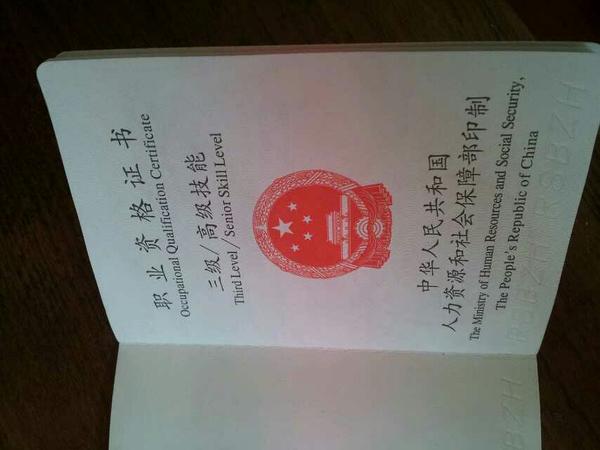 职业资格证书
Occupational Qualification Certificate
三级/高级技能
Third Level/Senior Skill Level
中华人民共和国
人力资源和社会保障部印制
The Ministry of Human Resources and Social Security,
The People's Republic of China